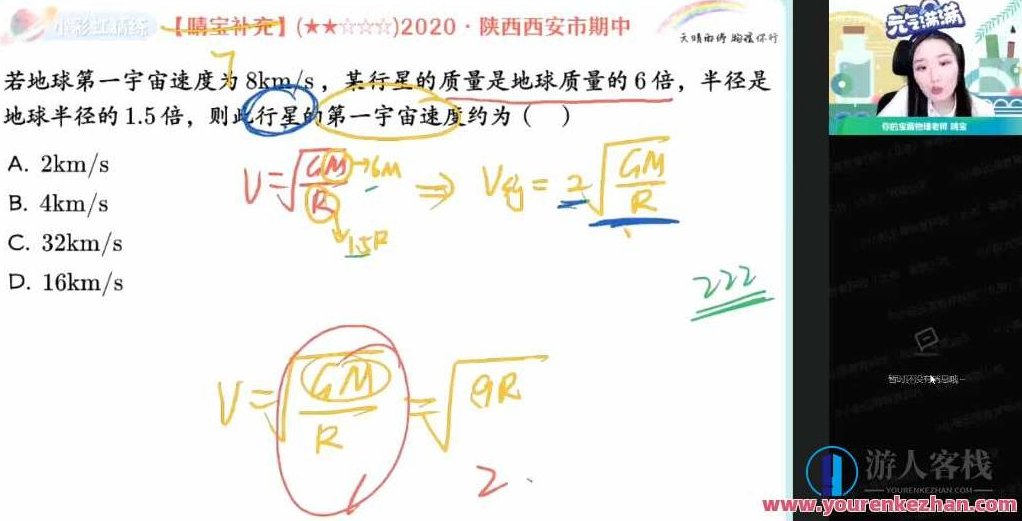 小彩虹精练 【睛宝补充】(★★☆☆☆)2020·陕西西安市期中
天晴雨停 抱复你行
7
若地球第一宇宙速度为8km/s，某行星的质量是地球质量的6倍，半径是
地球半径的1.5倍，则此行星的第一宇宙速度约为（ ）
A. 2km/s
B. 4km/s
C. 32km/s
D. 16km/s
V=√(GM/R) →6M ⇒ V行=2√(GM/R)
1.5R
222
V=√(GM/R)=√gR
1 2
元气满满
你的宝藏物理老师 睛宝
暂时还没有消息哦~
游人客栈
YOURENKEZHAN.COM
www.yourenkezhan.com